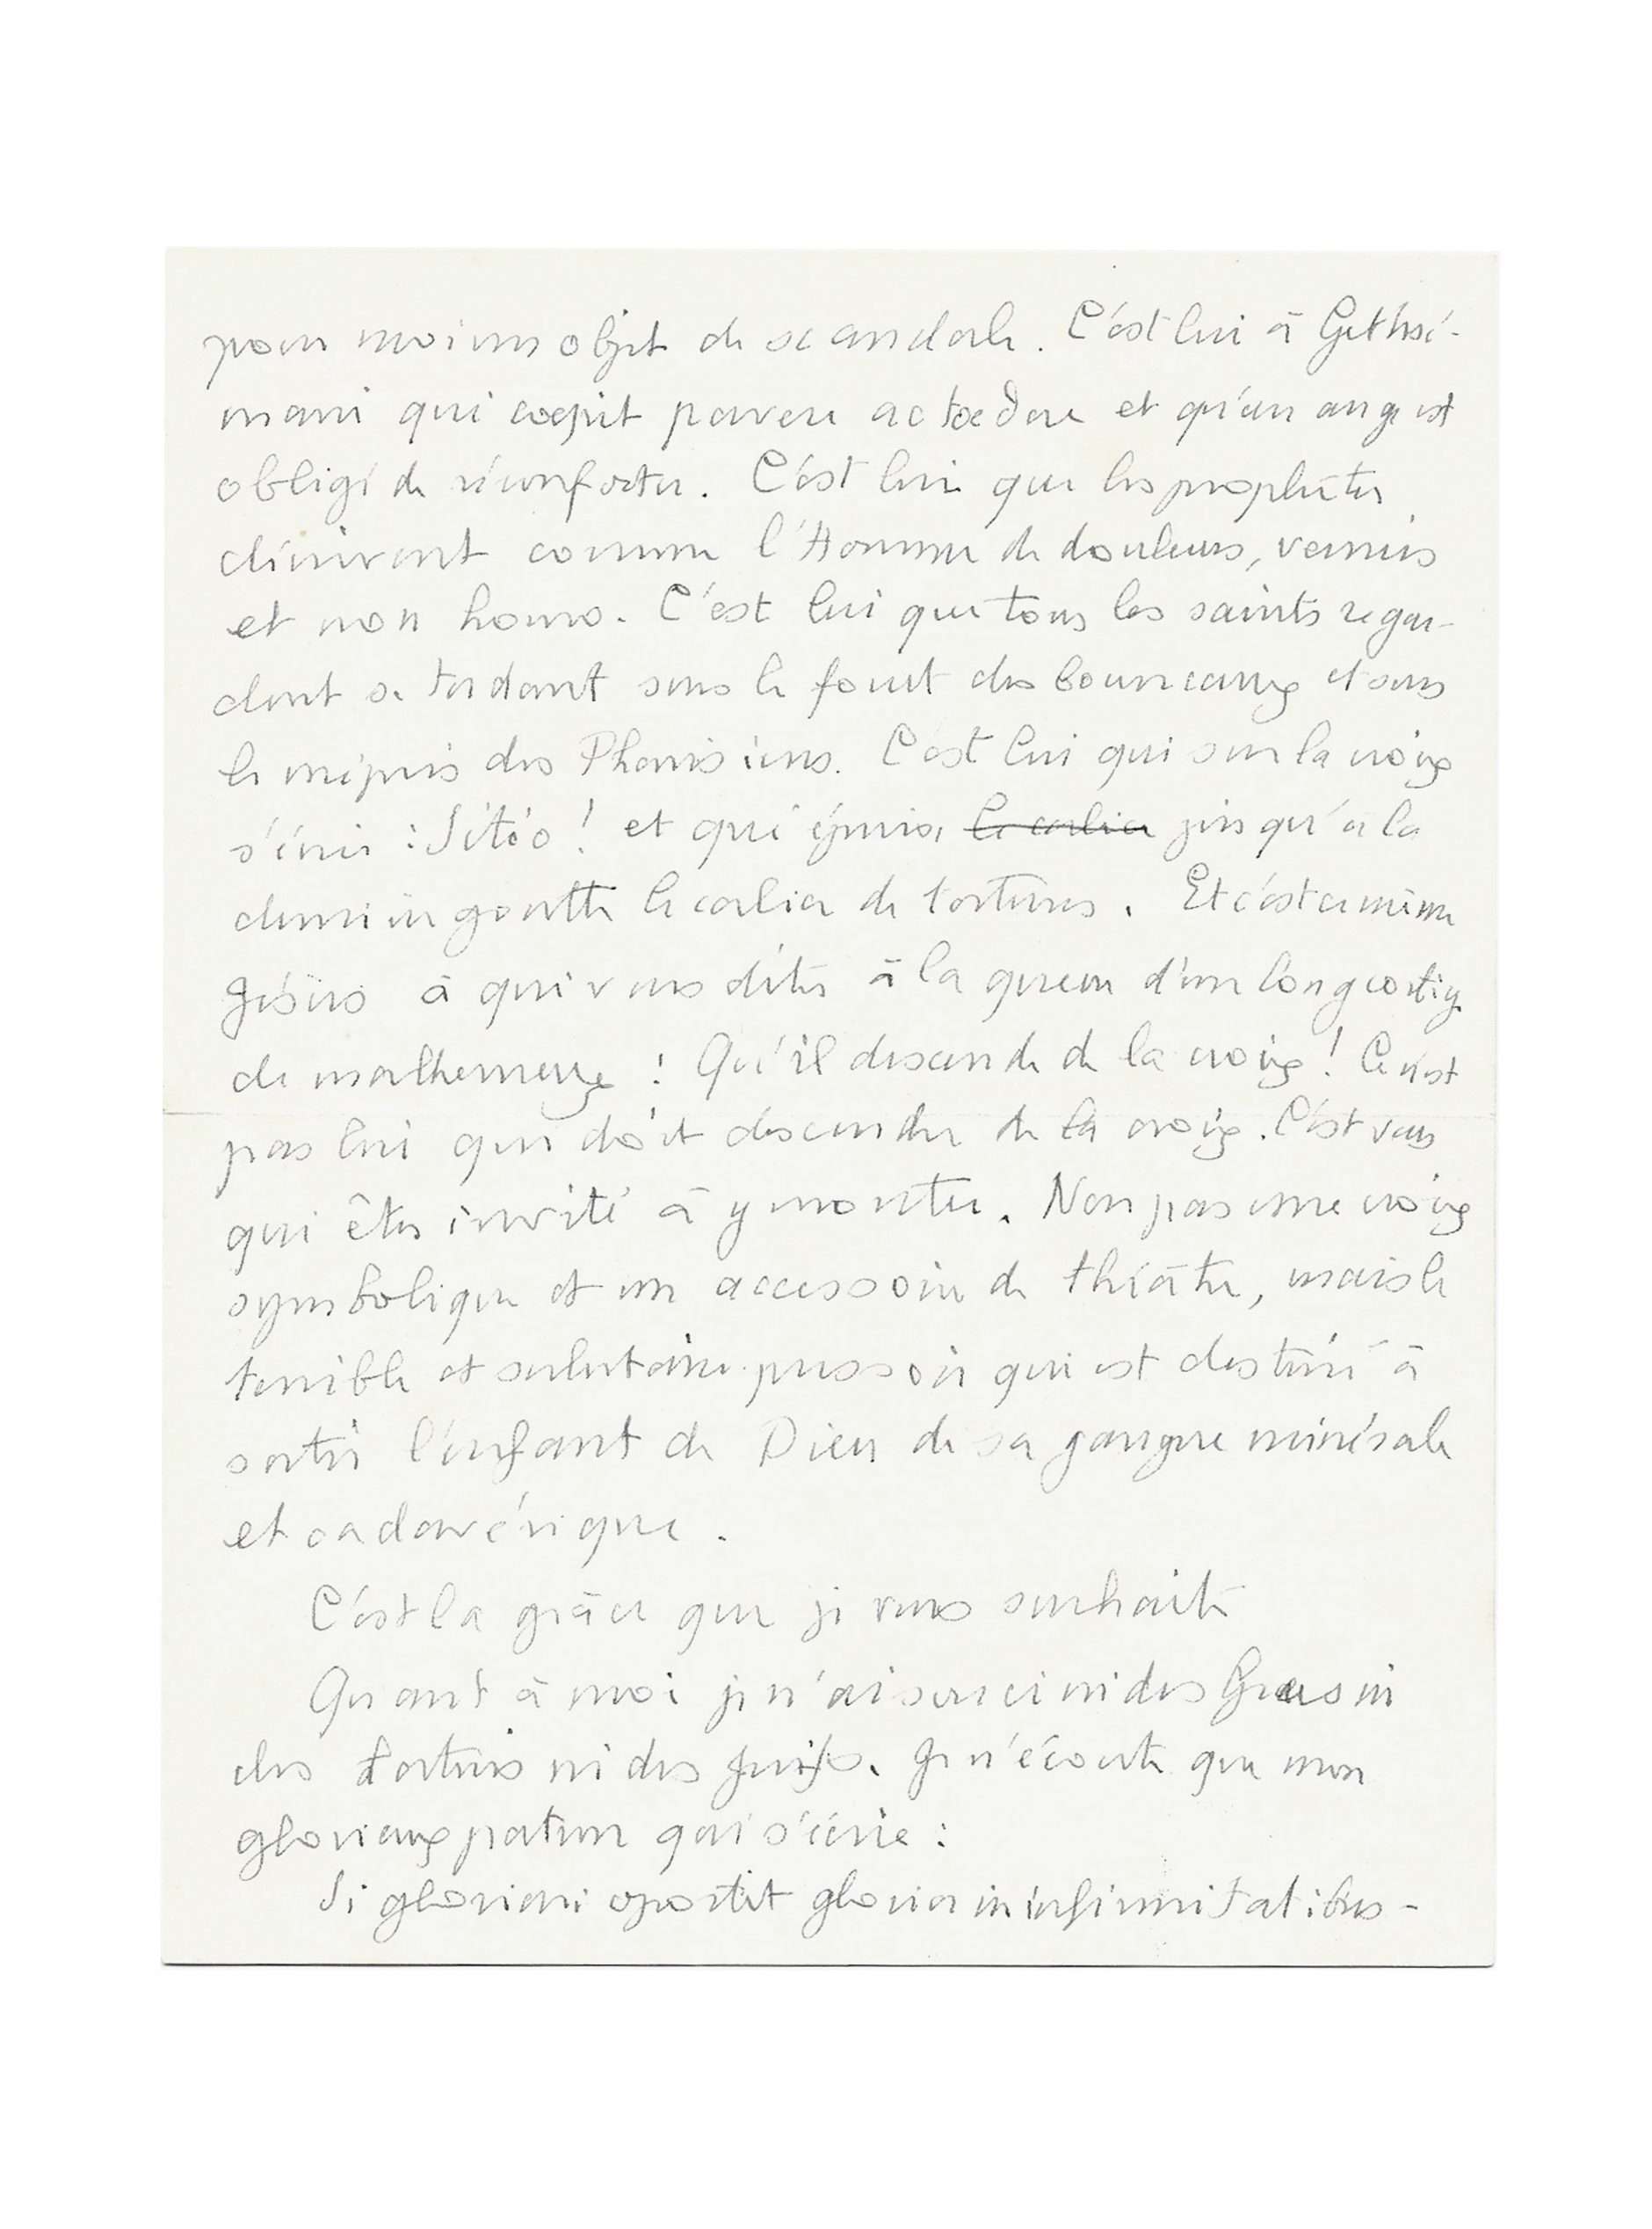 pour moi un objet de scandale. C'est lui à Gethsé-
mani qui coepit pavere ac toedere et qu'un ange est
obligé de réconforter. C'est lui que les prophètes
décrivent comme l'Homme de douleurs, vermis
et non homo. C'est lui que tous les saints regar-
dent se tordant sous le fouet des bourreaux et sous
le mépris des Pharisiens. C'est lui qui sur la croix
s'écrie : Sitio ! et qui épuisa le calice jusqu'à la
dernière goutte le calice de tortures. Et c'est ce même
Jésus à qui vous dites à la queue d'un long cortège
de malheureux : Qu'il descende de la croix ! Ce n'est
pas lui qui doit descendre de la croix. C'est vous
qui êtes invité à y monter. Non pas une croix
symbolique et un accessoire de théâtre, mais le
terrible et salutaire pressoir qui est destiné à
sortir l'enfant de Dieu de sa gangue minérale
et cadavérique.
C'est la grâce que je vous souhaite
Quant à moi je n'ai souci ni des Grecs ni
des ni des Juifs. Je n'écoute que mon
glorieux patron qui s'écrie :
Si gloriari oportet gloria in infirmitatibus -